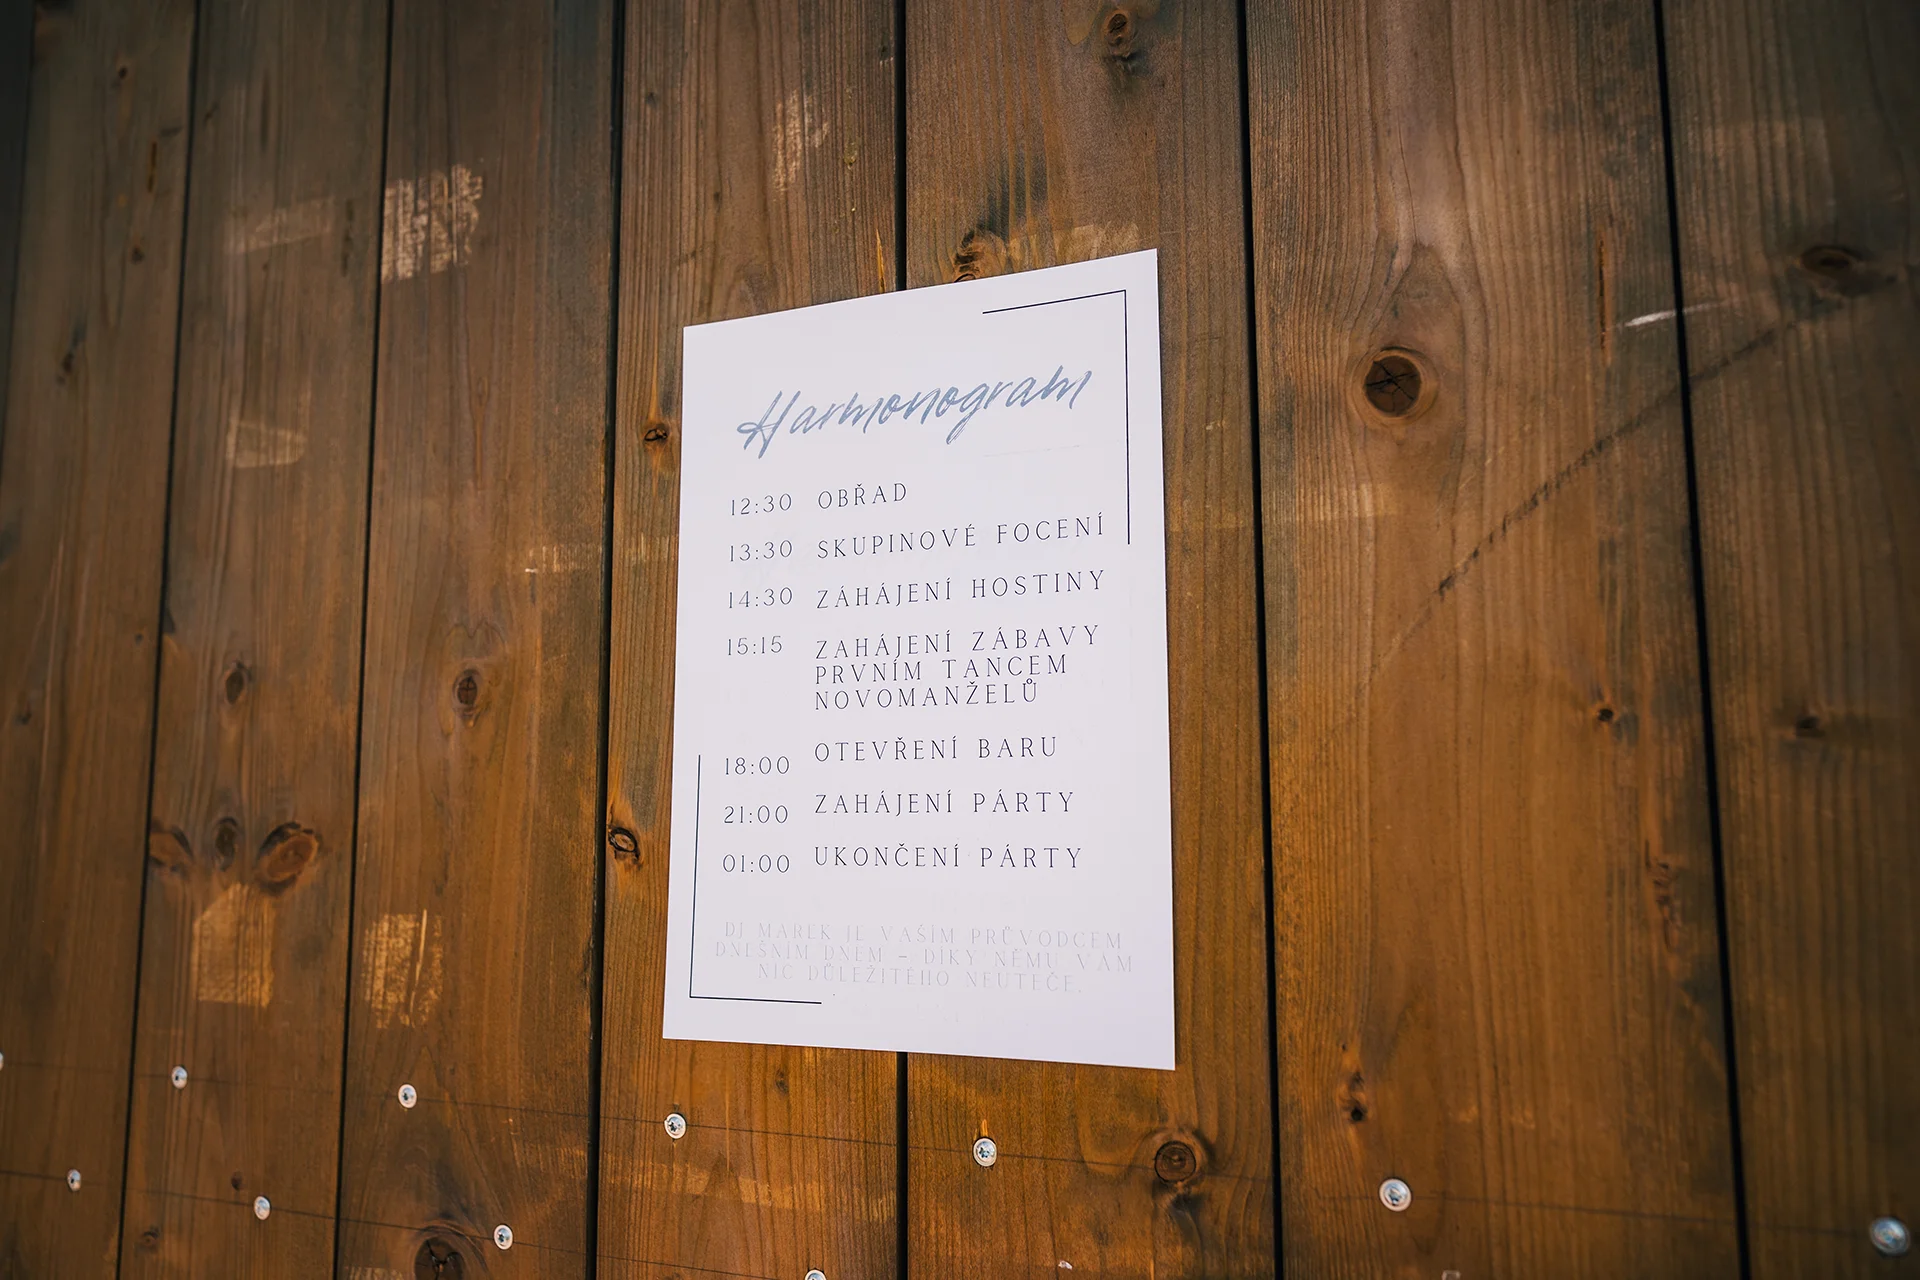 Harmonogram
12:30 OBŘAD
13:30 SKUPINOVÉ FOCENÍ
14:30 ZÁHÁJENÍ HOSTINY
15:15 ZAHÁJENÍ ZÁBAVY
PRVNÍM TANCEM
NOVOMANŽELŮ
18:00 OTEVŘENÍ BARU
21:00 ZAHÁJENÍ PÁRTY
01:00 UKONČENÍ PÁRTY
DJ MAREK JE VAŠÍM PRŮVODCEM
DNEŠNÍM DNEM – DÍKY NĚMU VÁM
NIC DŮLEŽITÉHO NEUTEČE.